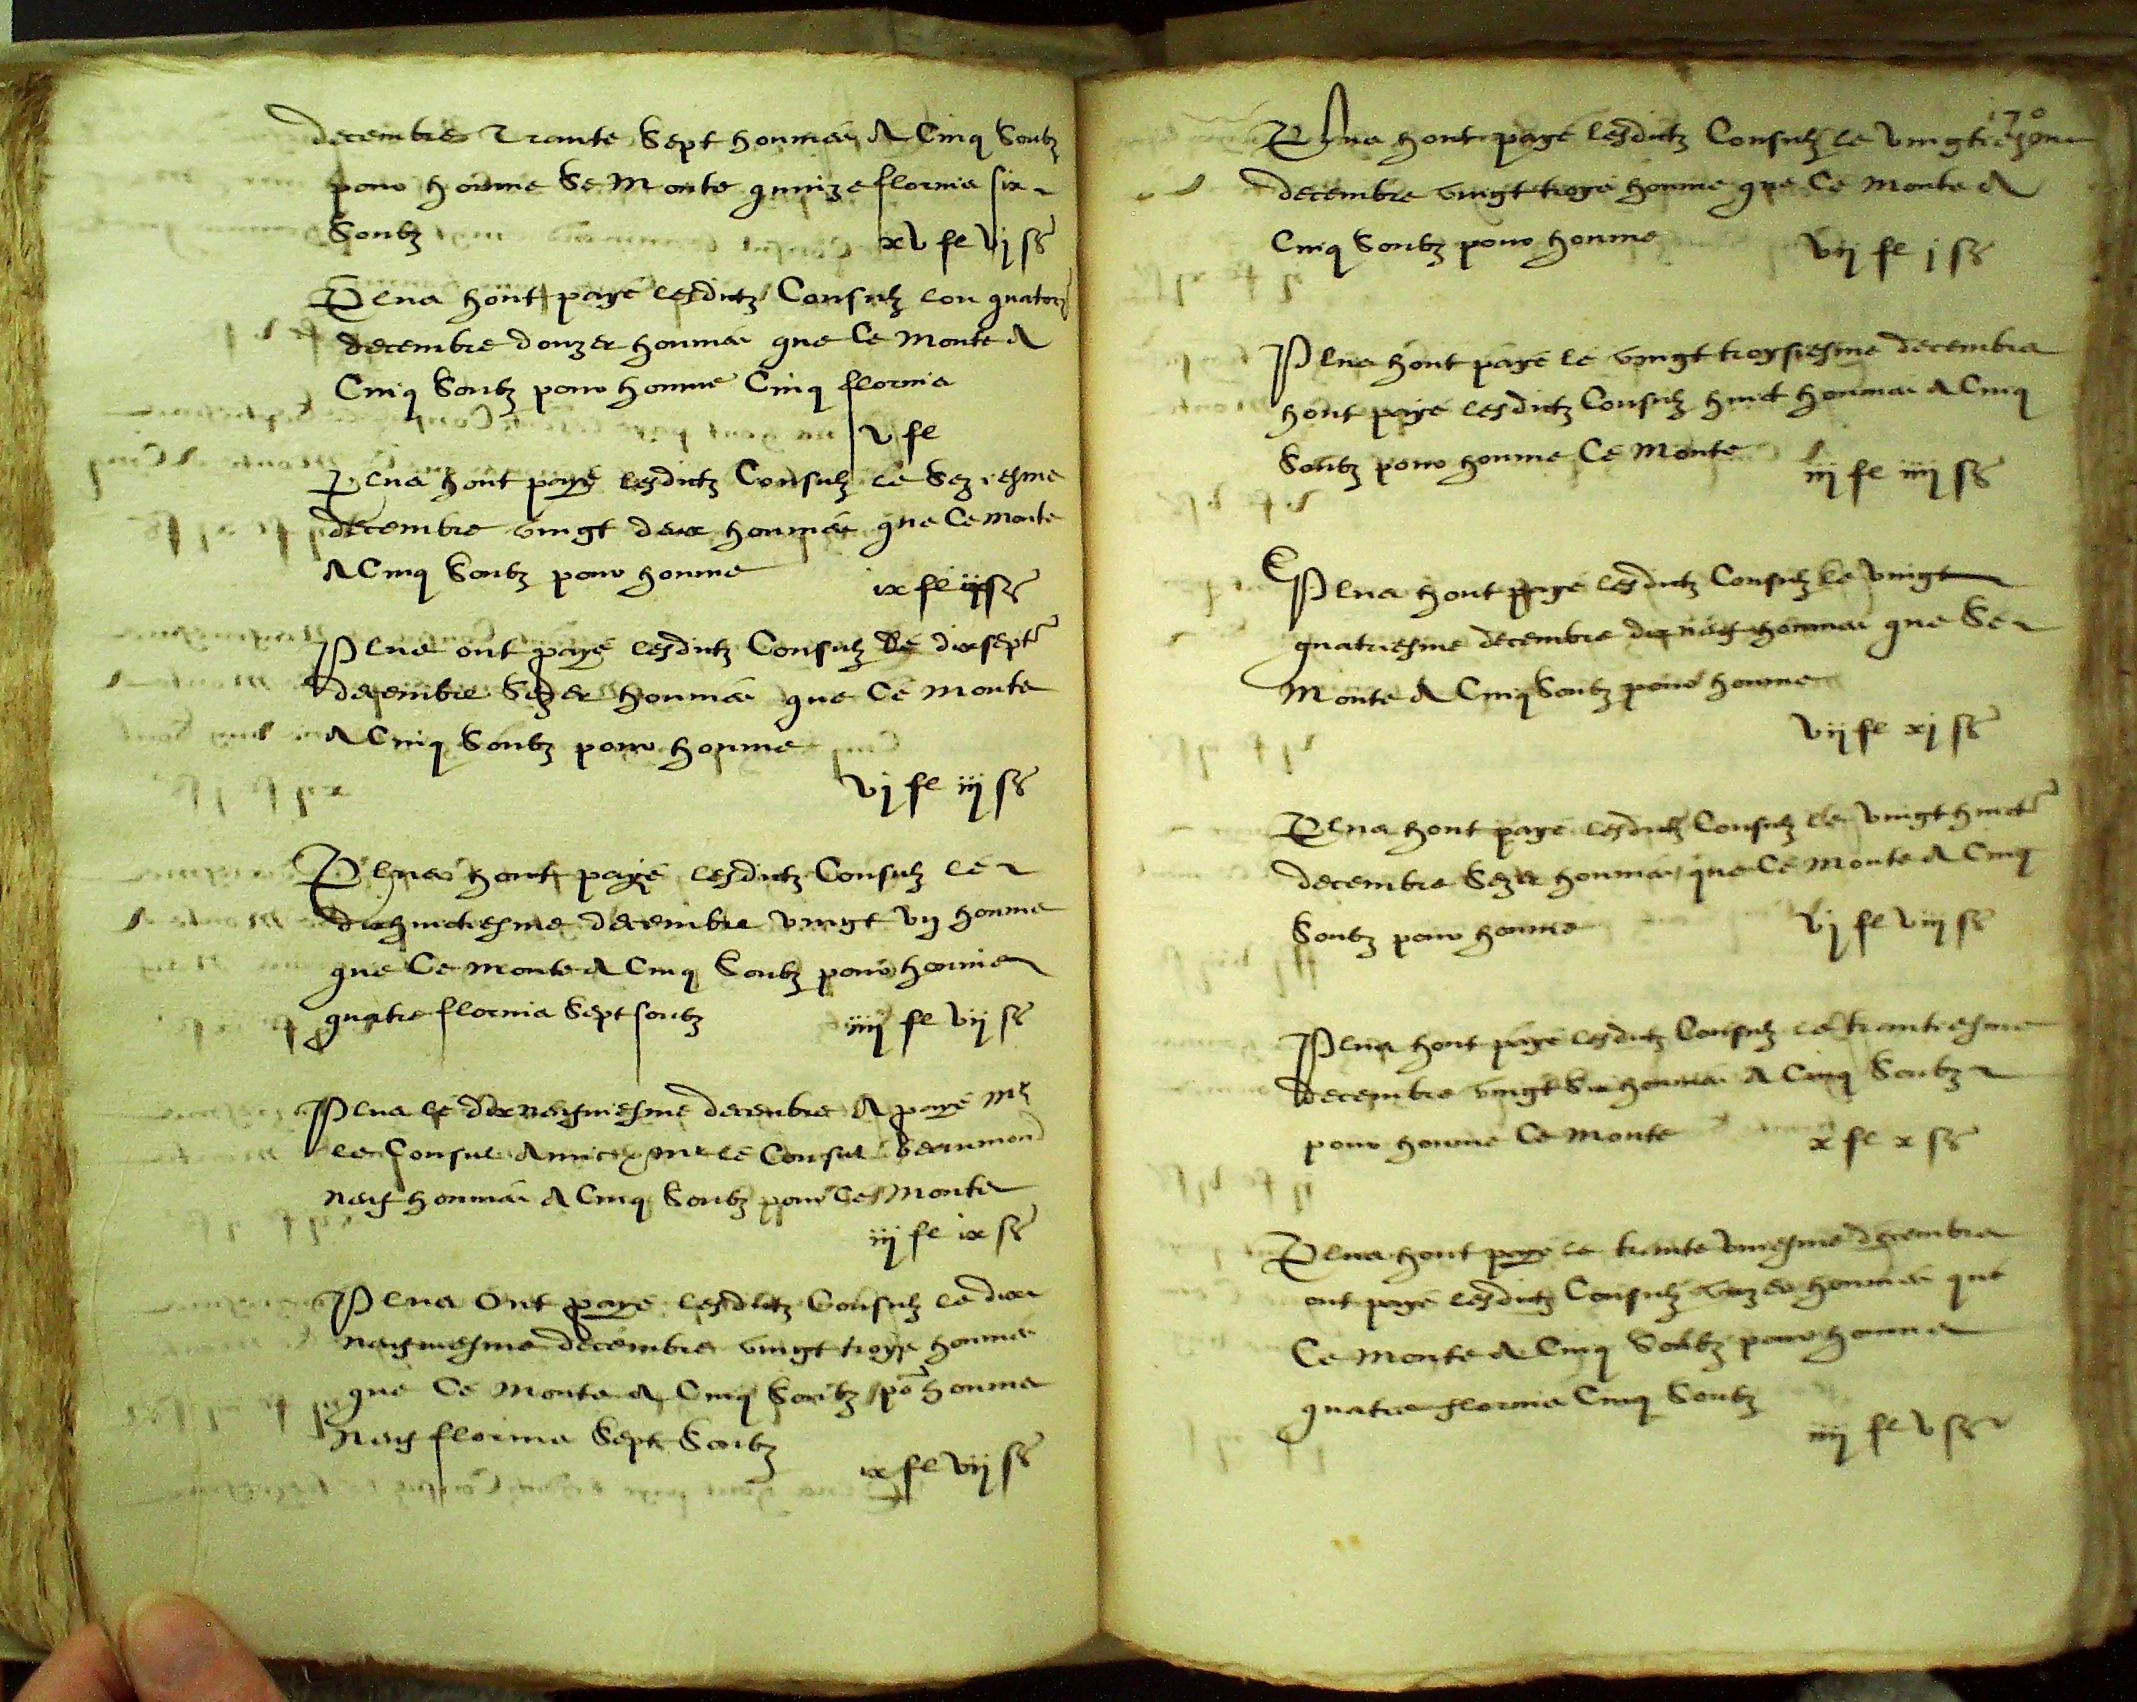 decembre Trante Sept hommes A Cinq Soubz
pour homme Se Monte quinze florins six
Soubz xv fl vj ss
Plus hont payé lesditz Consulz lou quatorz
decembre douzes hommes que Ce Monte A
Cinq Soubz pour homme Cinq florins
v fl
Plus hont payé lesditz Consulz le Seziesme
decembre vingt deux hommes que Ce monte
A Cinq Soubz pour homme
ix fl ij ss
Plus ont payé lesditz Consulz le dixsept
decembre Sezes hommes que Ce Monte
A Cinq Soubz pour homme
vj fl iij ss
Plus hont payé lesditz Consulz le
dixhuictiesme decembre vingt vn homme
que Ce Monte A Cinq Soubz pour homme
quatre florins Sept soubz iiij fl vij ss
Plus le dixneufviesme decembre A payé Mr
le Consul le Consul beaumond
neuf hommes A Cinq Soubz pour Ce Monte
iij fl ix ss
Plus Ont payé lesditz Consulz le dix
neufviesme decembre vingt troys hommes
que Ce Monte A Cinq Soubz por homme
Neuf florins Sept Soubz
ix fl vij ss
170
Plus hont payé lesditz Consulz le vingtiesme
decembre vingt troys homme que Ce Monte A
Cinq Soubz pour homme vij fl j ss
Plus hont payé le vingt troysiesme decembre
hont payé lesditz Consulz huict hommes A Cinq
Soubz pour homme Ce Monte iij fl iiij ss
Plus hont payé lesditz Consulz le vingt
quatriesme decembre dix neuf hommes que Se
Monte A Cinq Soubz pour homme
vij fl xj ss
Plus hont payé lesditz Consulz le vingt huict
decembre Sezes hommes que Ce Monte A Cinq
Soubz pour homme vj fl viij ss
Plus hont payé lesditz Consulz le trantiesme
decembre vingt Six hommes A Cinq Soubz
pour homme Ce Monte x fl x ss
Plus hont payé le trante vniesme decembre
ont payé lesditz Consulz vnzes hommes que
Ce Monte A Cinq Soubz pour homme
quatre florins Cinq Soubz
iiij fl v ss